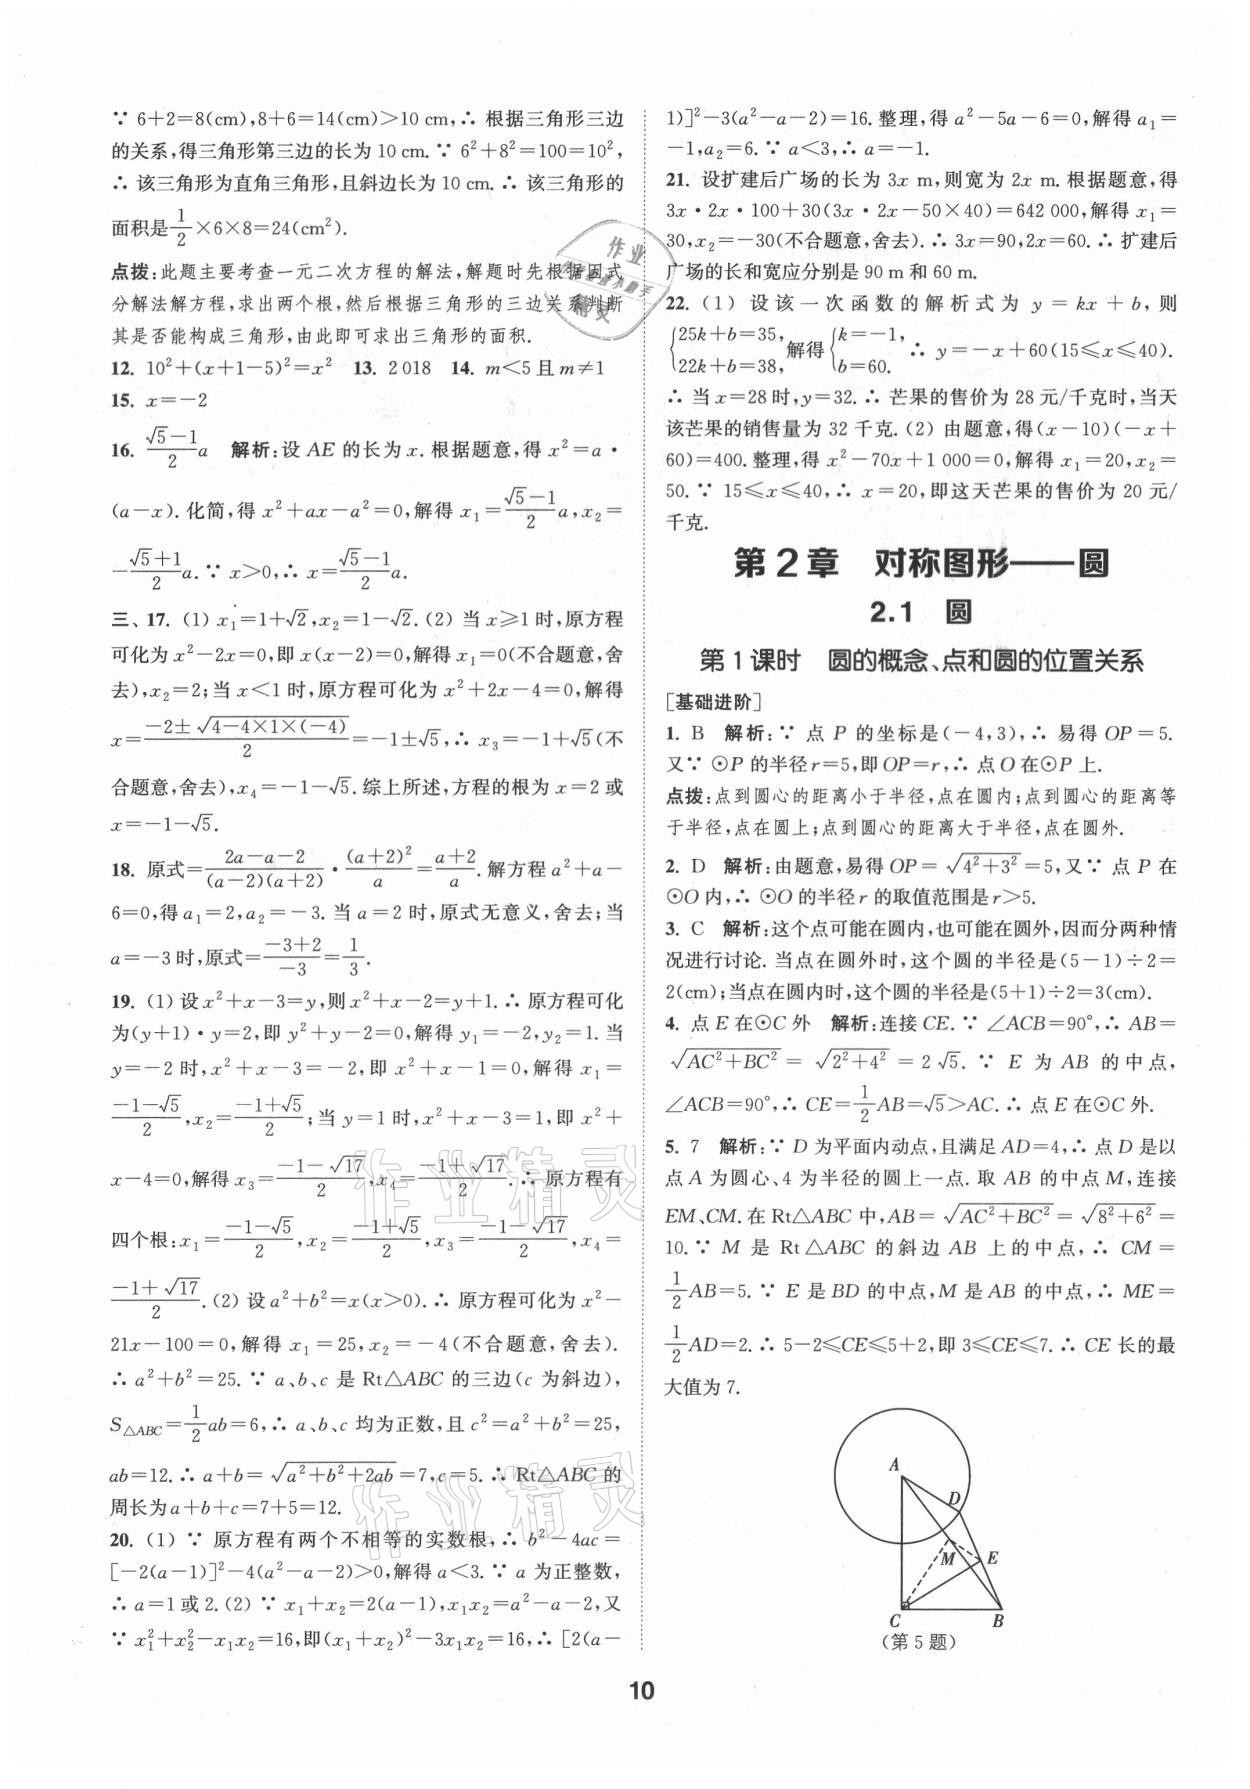 ∵ 6+2=8(cm),8+6=14(cm)>10 cm,∴ 根据三角形三边
的关系,得三角形第三边的长为 10 cm. ∵ 6²+8²=100=10²,
∴ 该三角形为直角三角形,且斜边长为 10 cm. ∴ 该三角形的
面积是\frac{1}{2}×6×8=24(cm²).
点拨:此题主要考查一元二次方程的解法,解题时先根据因式
分解法解方程,求出两个根,然后根据三角形的三边关系判断
其是否能构成三角形,由此即可求出三角形的面积.
12. 10²+(x+1-5)²=x² 13. 2 018 14. m<5 且 m≠1
15. x=-2
16. \frac{√5-1}{2}a 解析:设 AE 的长为 x. 根据题意,得 x²=a·
(a-x). 化简,得 x²+ax-a²=0,解得 x₁=\frac{√5-1}{2}a,x₂=
-\frac{√5+1}{2}a. ∵ x>0,∴ x=\frac{√5-1}{2}a.
三、17. (1) x₁=1+√2,x₂=1-√2. (2) 当 x≥1 时,原方程
可化为 x²-2x=0,即 x(x-2)=0,解得 x₁=0(不合题意,舍
去),x₂=2;当 x<1 时,原方程可化为 x²+2x-4=0,解得
x=\frac{-2±√(4-4×1×(-4))}{2}=-1±√5,∴ x₃=-1+√5(不
合题意,舍去),x₄=-1-√5. 综上所述,方程的根为 x=2 或
x=-1-√5.
18. 原式=\frac{2a-a-2}{(a-2)(a+2)}·\frac{(a+2)²}{a}=\frac{a+2}{a}. 解方程 a²+a-
6=0,得 a₁=2,a₂=-3. 当 a=2 时,原式无意义,舍去;当
a=-3 时,原式=\frac{-3+2}{-3}=\frac{1}{3}.
19. (1) 设 x²+x-3=y,则 x²+x-2=y+1. ∴ 原方程可化
为(y+1)·y=2,即 y²+y-2=0,解得 y₁=-2,y₂=1. 当
y=-2 时,x²+x-3=-2,即 x²+x-1=0,解得 x₁=
\frac{-1-√5}{2},x₂=\frac{-1+√5}{2};当 y=1 时,x²+x-3=1,即 x²+
x-4=0,解得 x₃=\frac{-1-√17}{2},x₄=\frac{-1+√17}{2}. ∴ 原方程有
四个根:x₁=\frac{-1-√5}{2},x₂=\frac{-1+√5}{2},x₃=\frac{-1-√17}{2},x₄=
\frac{-1+√17}{2}. (2) 设 a²+b²=x(x>0). ∴ 原方程可化为 x²-
21x-100=0,解得 x₁=25,x₂=-4(不合题意,舍去).
∴ a²+b²=25. ∵ a、b、c 是 Rt△ABC 的三边(c 为斜边),
S△ABC=\frac{1}{2}ab=6,∴ a、b、c 均为正数,且 c²=a²+b²=25,
ab=12. ∴ a+b=√(a²+b²+2ab)=7,c=5. ∴ Rt△ABC 的
周长为 a+b+c=7+5=12.
20. (1) ∵ 原方程有两个不相等的实数根,∴ b²-4ac=
[-2(a-1)]²-4(a²-a-2)>0,解得 a<3. ∵ a 为正整数,
∴ a=1 或 2. (2) ∵ x₁+x₂=2(a-1),x₁x₂=a²-a-2,又
∵ x₁²+x₂²-x₁x₂=16,即(x₁+x₂)²-3x₁x₂=16,∴ [2(a-
1)]²-3(a²-a-2)=16. 整理,得 a²-5a-6=0,解得 a₁=
-1,a₂=6. ∵ a<3,∴ a=-1.
21. 设扩建后广场的长为 3x m,则宽为 2x m. 根据题意,得
3x·2x·100+30(3x·2x-50×40)=642 000,解得 x₁=
30,x₂=-30(不合题意,舍去). ∴ 3x=90,2x=60. ∴ 扩建后
广场的长和宽应分别是 90 m 和 60 m.
22. (1) 设该一次函数的解析式为 y=kx+b,则
{25k+b=35, 22k+b=38, 解得 {k=-1, b=60. ∴ y=-x+60(15≤x≤40).
∴ 当 x=28 时,y=32. ∴ 芒果的售价为 28 元/千克时,当天
该芒果的销售量为 32 千克. (2) 由题意,得(x-10)(-x+
60)=400. 整理,得 x²-70x+1 000=0,解得 x₁=20,x₂=
50. ∵ 15≤x≤40,∴ x=20,即这天芒果的售价为 20 元/
千克.
第2章 对称图形——圆
2.1 圆
第1课时 圆的概念、点和圆的位置关系
[基础进阶]
1. B 解析:∵ 点 P 的坐标是(-4,3),∴ 易得 OP=5.
又∵ ⊙P 的半径 r=5,即 OP=r,∴ 点 O 在⊙P 上.
点拨:点到圆心的距离小于半径,点在圆内;点到圆心的距离等
于半径,点在圆上;点到圆心的距离大于半径,点在圆外.
2. D 解析:由题意,易得 OP=√(4²+3²)=5,又∵ 点 P 在
⊙O 内,∴ ⊙O 的半径 r 的取值范围是 r>5.
3. C 解析:这个点可能在圆内,也可能在圆外,因而分两种情
况进行讨论. 当点在圆外时,这个圆的半径是(5-1)÷2=
2(cm);当点在圆内时,这个圆的半径是(5+1)÷2=3(cm).
4. 点 E 在⊙C 外 解析:连接 CE. ∵ ∠ACB=90°,∴ AB=
√(AC²+BC²)=√(2²+4²)=2√5. ∵ E 为 AB 的中点,
∠ACB=90°,∴ CE=\frac{1}{2}AB=√5>AC. ∴ 点 E 在⊙C 外.
5. 7 解析:∵ D 为平面内动点,且满足 AD=4,∴ 点 D 是以
点 A 为圆心、4 为半径的圆上一点. 取 AB 的中点 M,连接
EM、CM. 在 Rt△ABC 中,AB=√(AC²+BC²)=√(8²+6²)=
10. ∵ M 是 Rt△ABC 的斜边 AB 上的中点,∴ CM=
\frac{1}{2}AB=5. ∵ E 是 BD 的中点,M 是 AB 的中点,∴ ME=
\frac{1}{2}AD=2. ∴ 5-2≤CE≤5+2,即 3≤CE≤7. ∴ CE 长的最
大值为 7.
A
D
M
E
C
B
(第 5 题)
10
作业精灵
作业精灵